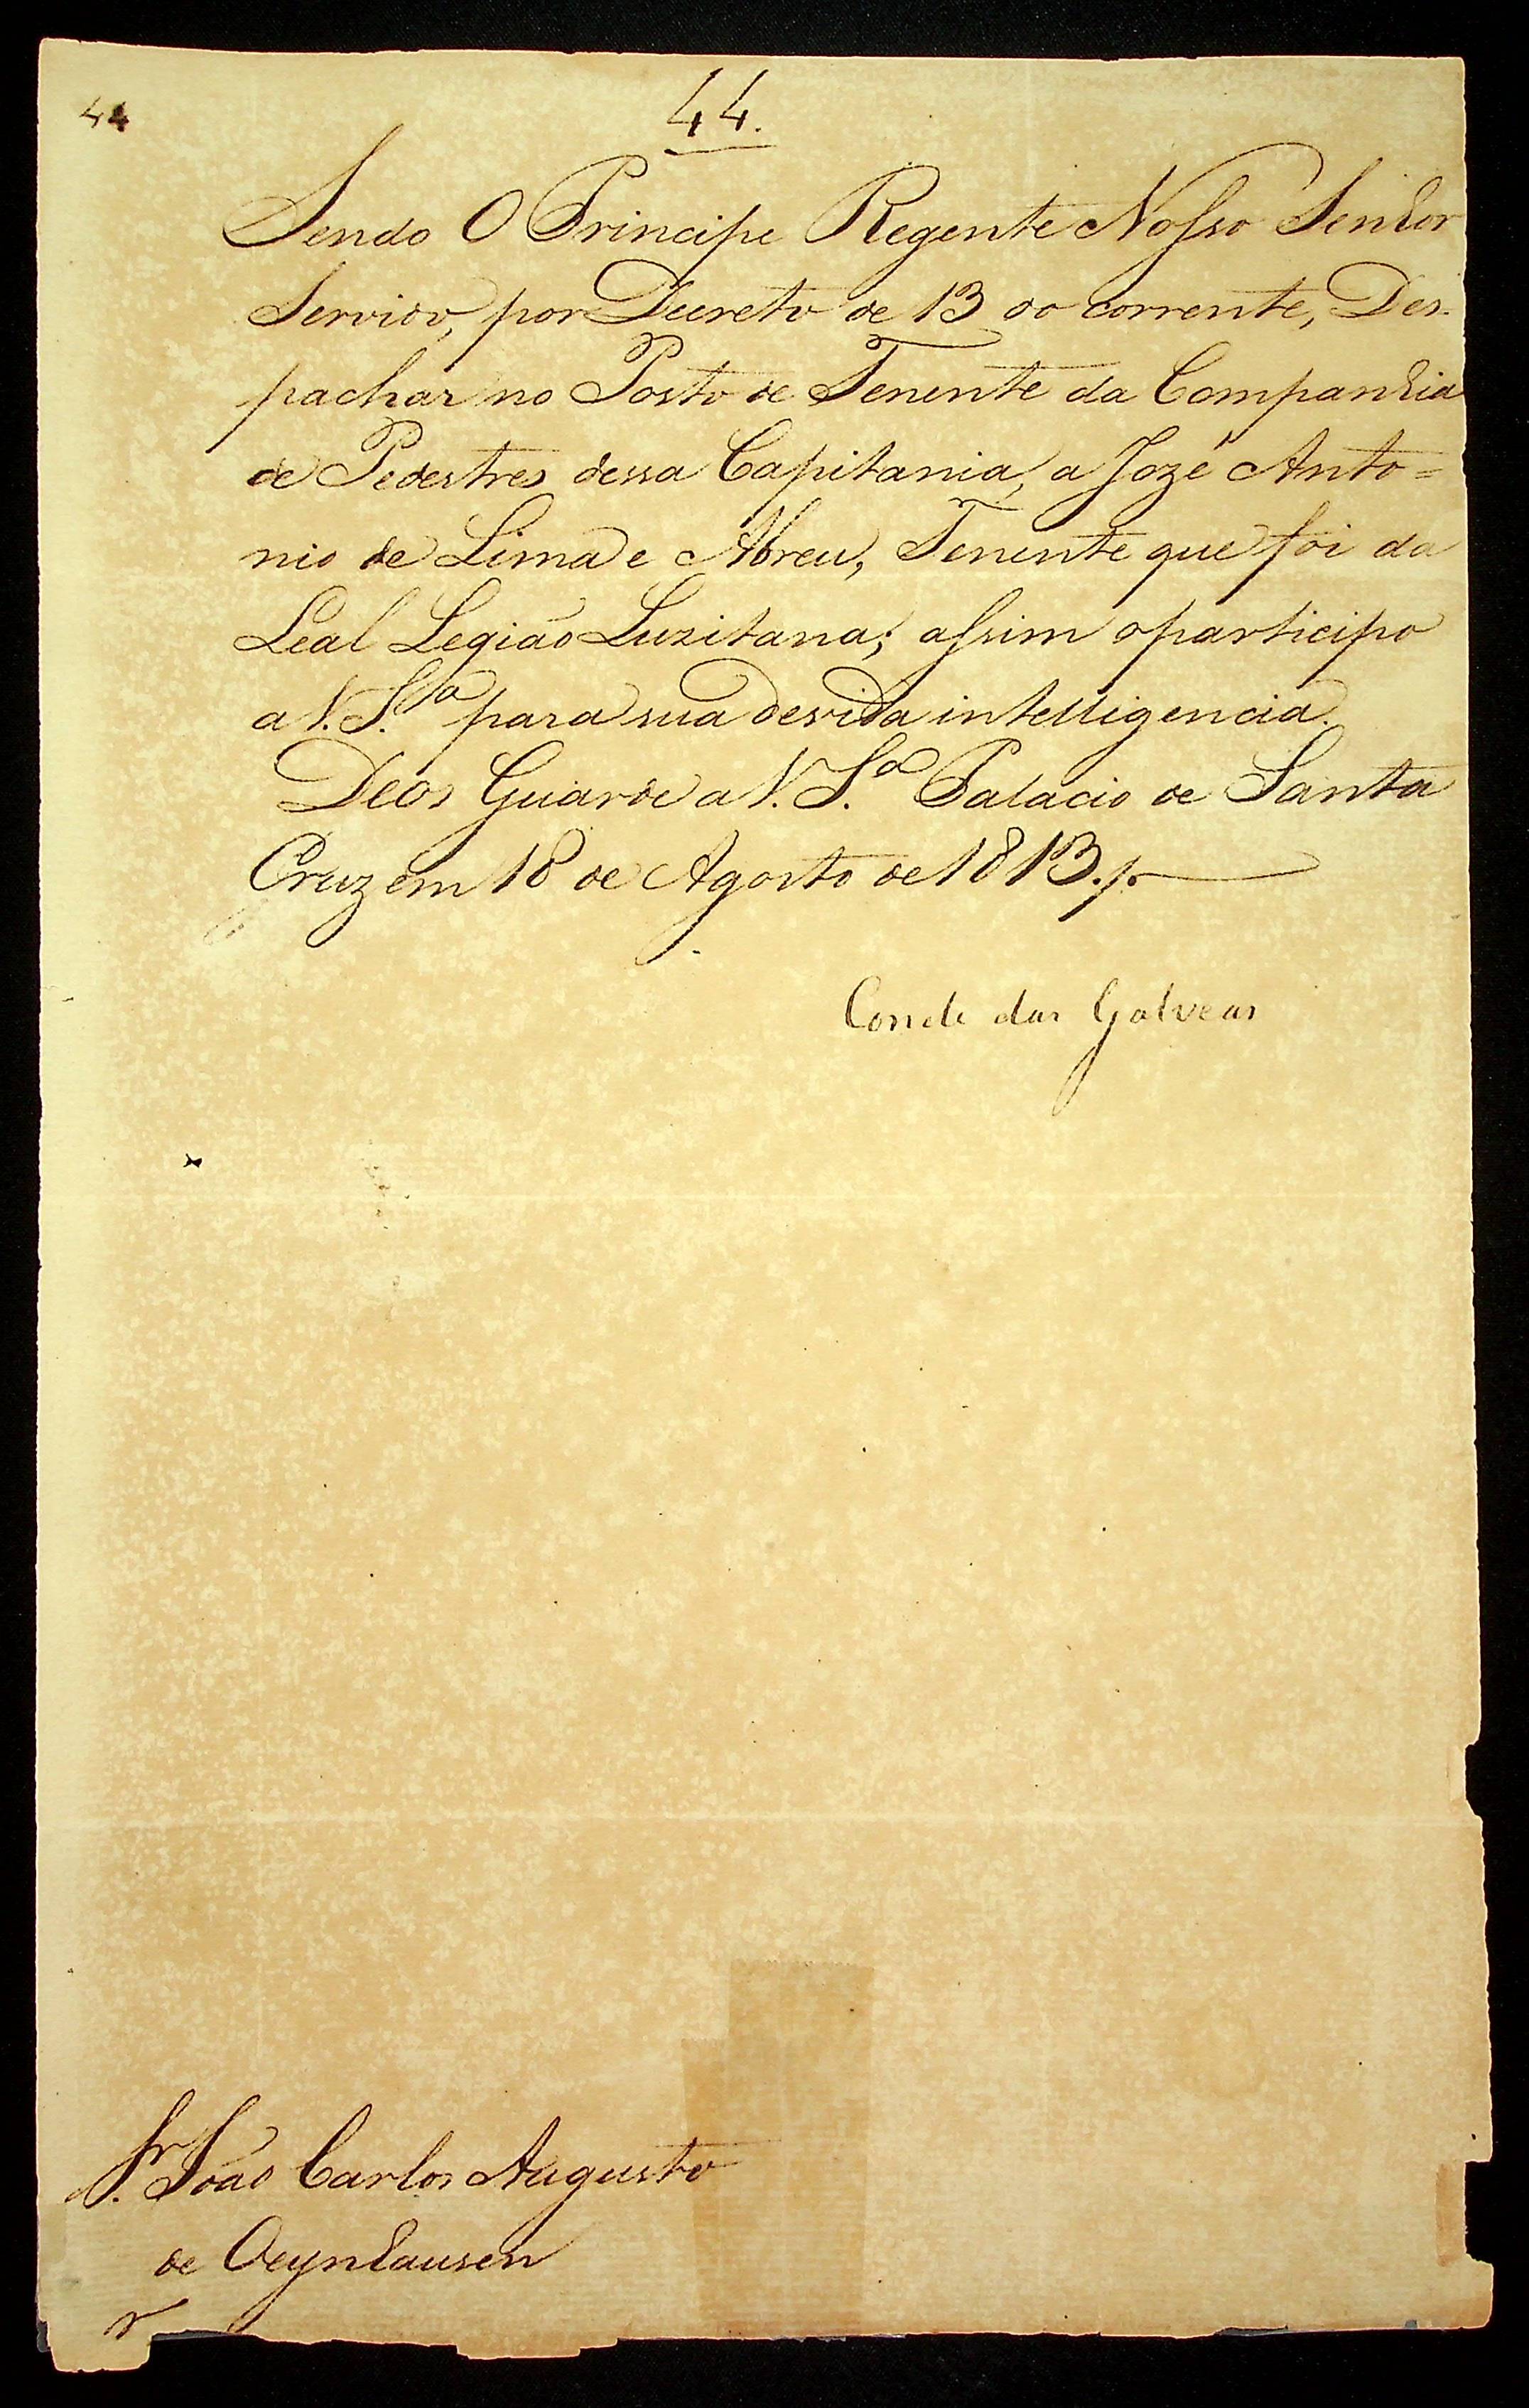 44
44.
Sendo O Principe Regente Nosso Senhor
Servido, por Decreto de 13 do corrente, Des-
pachar no Posto de Tenente da Companhia
de Pedestres dessa Capitania, a Jozé Anto=
nio de Lima e Abreu, Tenente que foi da
Leal Legião Luzitana; assim o participo
a V. S.ª para sua devida intelligencia.
Deos Guarde a V. S.ª Palacio de Santa
Cruz em 18 de Agosto de 1813.
Conde das Galveas
Sr. João Carlos Augusto
de Oeynhausen